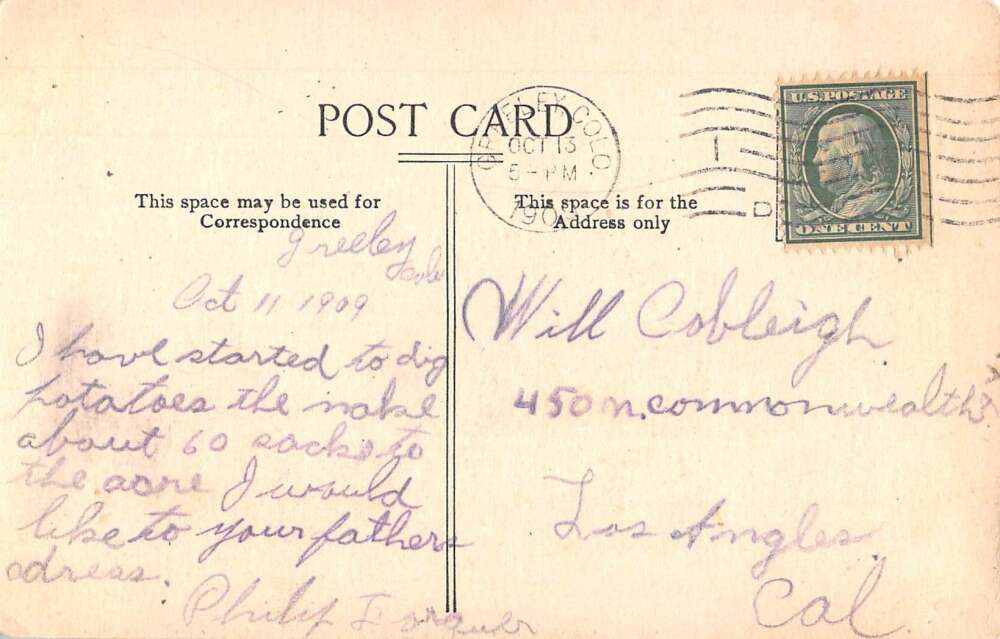 POST CARD
GREELEY, COLO.
OCT 13
5-PM
190
1
D
U.S. POSTAGE
ONE CENT
This space may be used for
Correspondence
This space is for the
Address only
Greeley
Colo
Oct 11 1909
I have started to dig
potatoes the make
about 60 sacks to
the acre I would
like to your fathers
adress.
Philip
Will Cobleigh
450 N. commonwealth
Los Angles
Cal